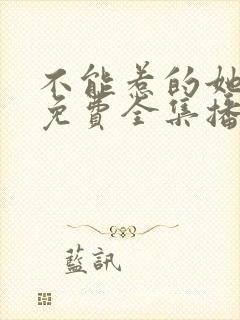 不能惹的她
免費全集播
藍訊